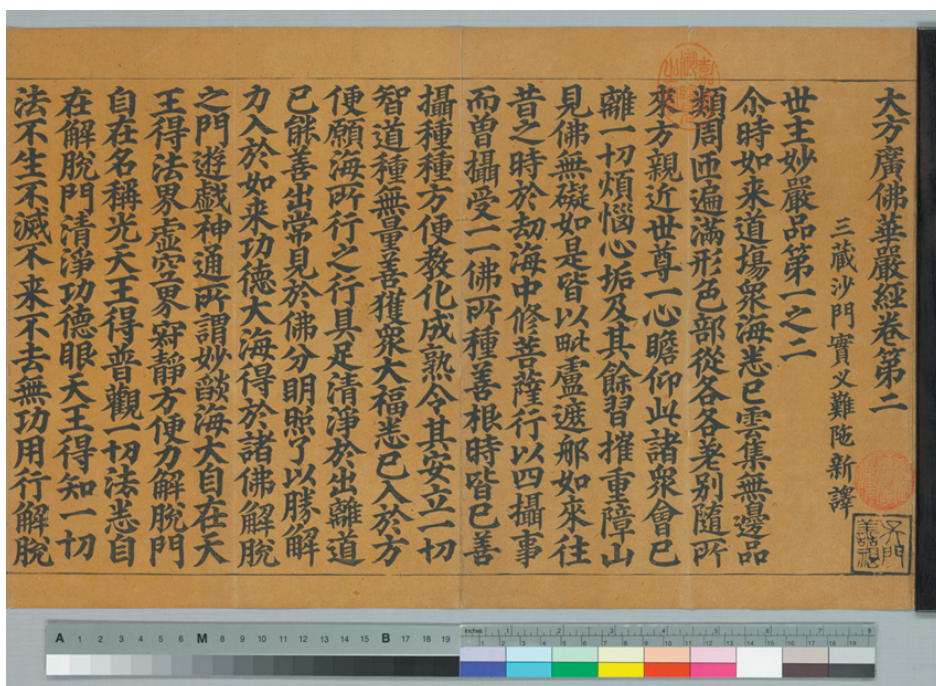 大方廣佛華嚴經卷第二
三藏沙門實叉難陁新譯
世主妙嚴品第一之二
尒時如来道場衆海悉已雲集無邊品
類周匝遍滿形色部從各各差別随所
來方親近世尊一心瞻仰此諸衆會已
離一切煩惱心垢及其餘習摧重障山
見佛無礙如是皆以毗盧遮那如來往
昔之時於劫海中修菩薩行以四攝事
而曽攝受一一佛所種善根時皆已善
攝種種方便教化成熟令其安立一切
智道種無量善獲衆大福悉已入於方
便願海所行之行具足清淨於出離道
已能善出常見於佛分明照了以勝解
力入於如來功德大海得於諸佛解脫
之門遊戲神通所謂妙𦦨海大自在天
王得法界虛空界寂靜方便力解脫門
自在名稱光天王得普觀一切法悉自
在解脫門清淨功德眼天王得知一切
法不生不滅不来不去無功用行解脫
inches 1 2 3 4 5 6 7 8
A 1 2 3 4 5 6 M 8 9 10 11 12 13 14 15 B 17 18 19